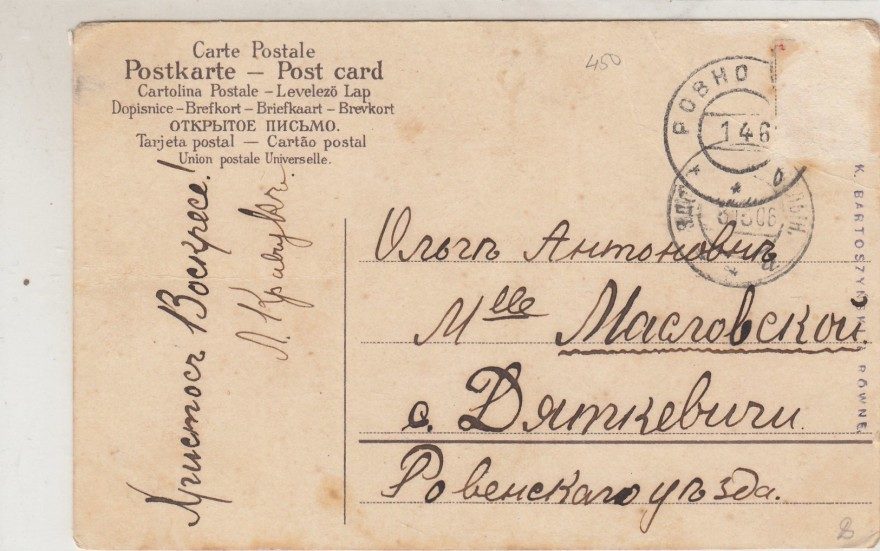 Carte Postale
Postkarte — Post card
Cartolina Postale – Levelező Lap
Dopisnice – Brefkort – Briefkaart – Brevkort
ОТКРЫТОЕ ПИСЬМО.
Tarjeta postal — Cartão postal
Union postale Universelle.
450
РОВНО
146
Христосъ Воскресе!
Л.
Ольгѣ Антоновнѣ
Mlle Масловской
с. Дяткевичи
Ровенскаго уѣзда.
K. BARTOSZY RÓWNE